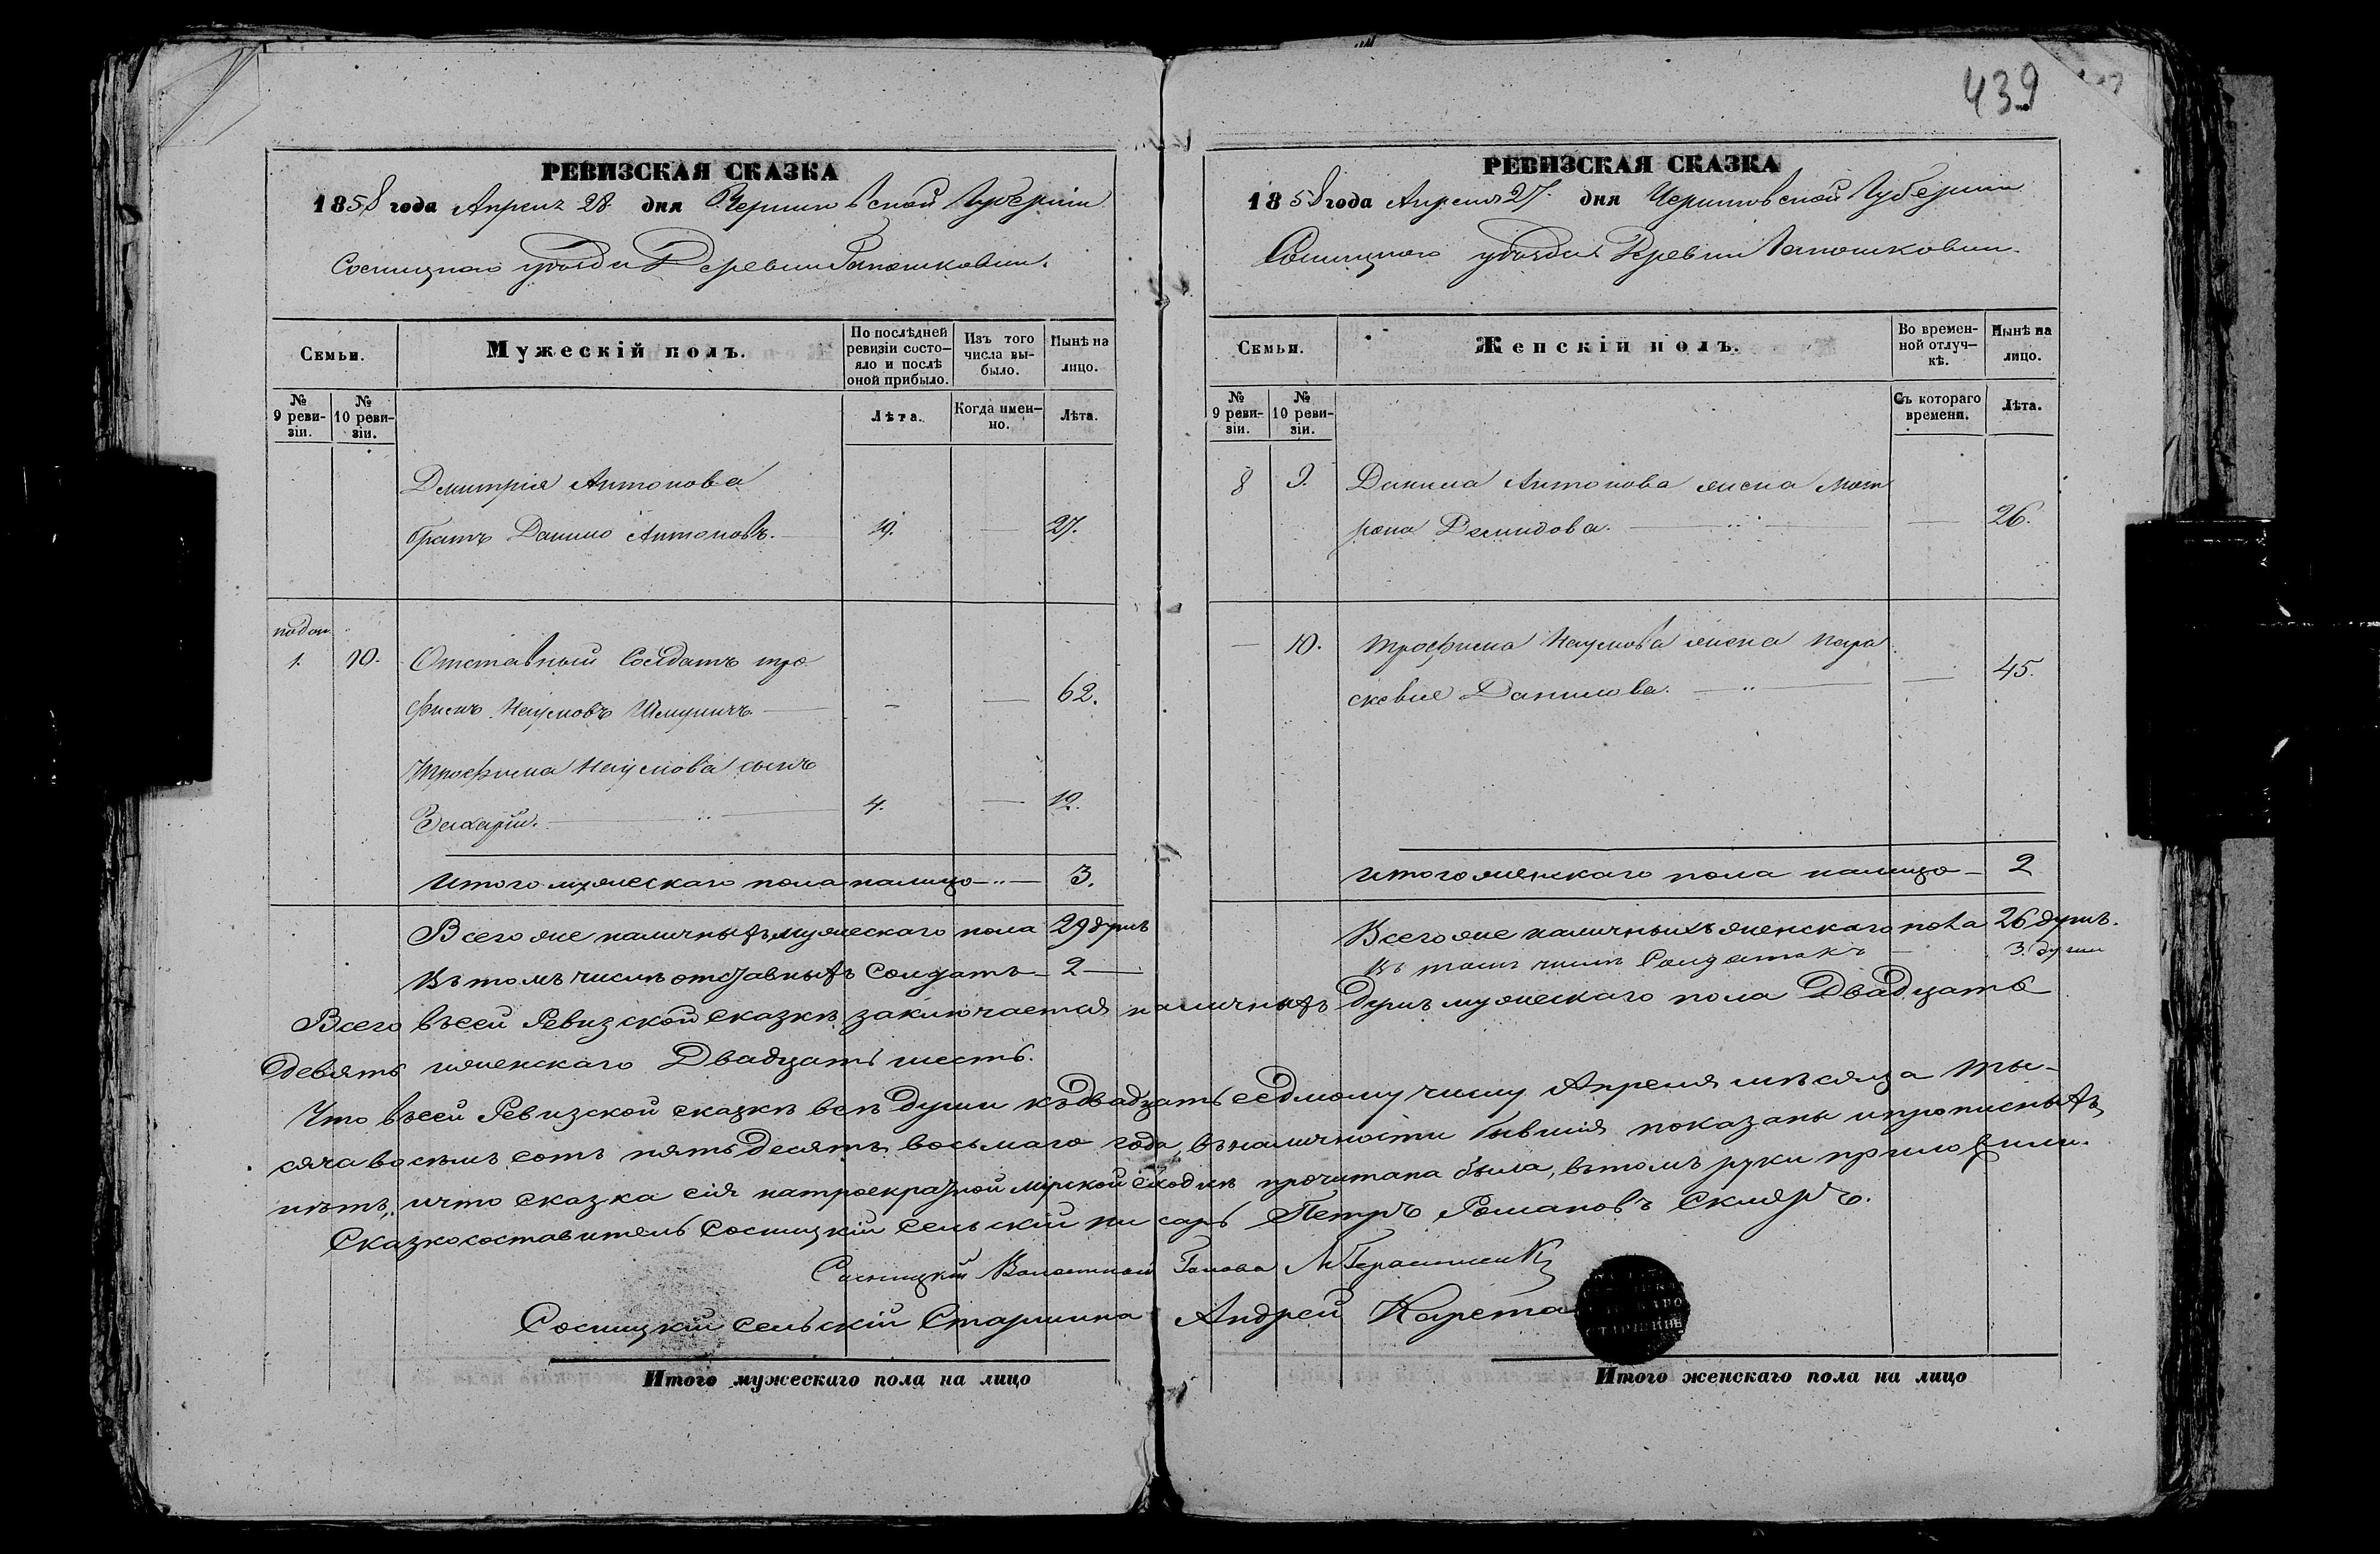 439
РЕВИЗСКАЯ СКАЗКА
1858 года Апреля 28 дня Черниговской Губерніи
Сосницкаго уѣзда Деревни Гапошковки.
Семьи.
Мужескій полъ.
По послѣдней ревизіи состо-
яло и послѣ оной прибыло.
Изъ того числа вы-
было.
Нынѣ на лицо.
№ 9 реви-
зіи.
№ 10 реви-
зіи.
Лѣта.
Когда имен-
но.
Лѣта.
Дмитрія Антонова
братъ Данило Антоновъ. 19. — 27.
1. 10. Отставный Солдатъ Тро
фимъ Наумовъ — — 62.
Трофима Наумова сынъ
Захарій. 4. — 12.
Итого мужескаго пола налицо — 3.
Всего же наличныхъ мужескаго пола 29 душъ
Въ томъ числѣ отставныхъ Солдатъ — 2 —
РЕВИЗСКАЯ СКАЗКА
1858 года Апреля 27. дня Черниговской Губерніи
Сосницкаго уѣзда Деревни Гапошковки.
Семьи.
Женскій полъ.
Во времен-
ной отлуч-
кѣ.
Нынѣ на лицо.
№ 9 реви-
зіи.
№ 10 реви-
зіи.
Съ котораго времени.
Лѣта.
8 9. Данила Антонова жена Мат
рона Демидова. — — 26.
— 10. Трофима Наумова жена Пара
скевия Данилова. — — 45.
Итого женскаго пола налицо — 2
Всего же наличныхъ женскаго пола 26 душъ.
Въ томъ числѣ Солдатокъ — 3. души
Всего въ сей Ревизской сказкѣ заключается наличныхъ душъ мужескаго пола Двадцать
девять и женскаго Двадцать шесть.
Что въ сей Ревизской сказкѣ всѣ души къ двадцать седмому числу Апреля мѣсяца ты-
сяча восемь сотъ пятьдесятъ восьмаго года, въ наличности бывшія показаны и прописныхъ
нѣтъ, и что сказка сія на троекратной мірской сходкѣ прочитана была, въ томъ руки приложили.
Сказкосоставитель Сосницкій Сельскій писарь Петръ Романовъ Скляръ.
Сосницкій Волостной Голова
Сосницкій Сельскій Старшина Андрей Карета
Итого мужескаго пола на лицо
Итого женскаго пола на лицо